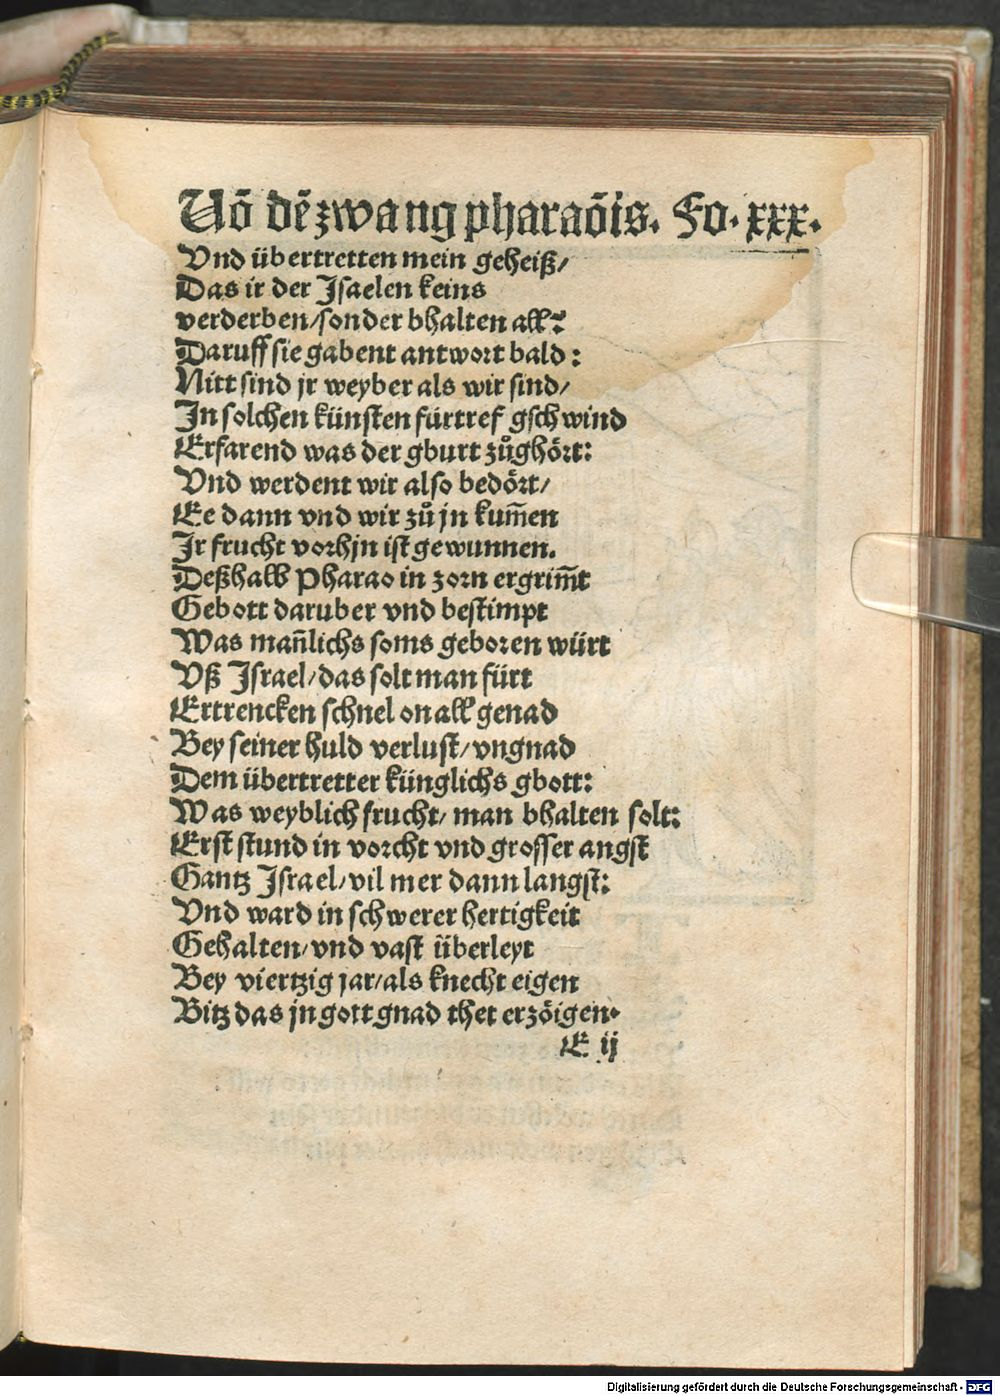 Uō dē zwang pharaōis. Fo. xxx.
Vnd übertretten mein geheiß/
Das ir der Jsaelen keins
verderben/sonder bhalten all?
Daruff sie gabent antwort bald:
Nitt sind jr weyber als wir sind/
Jn solchen künsten fürtref gschwind
Erfarend was der gburt zůghört:
Vnd werdent wir also bedört/
Ee dann vnd wir zů jn kum̄en
Jr frucht vorhjn ist gewunnen.
Deßhalb Pharao in zorn ergrim̄t
Gebott daruber vnd bestimpt
Was man̄lichs soms geboren würt
Vß Jsrael/das solt man fürt
Ertrencken schnel on all genad
Bey seiner huld verlust/vngnad
Dem übertretter künglichs gbott:
Was weyblich frucht/ man bhalten solt:
Erst stund in vorcht vnd grosser angst
Gantz Jsrael/vil mer dann langst:
Vnd ward in schwerer hertigkeit
Gehalten/vnd vast überleyt
Bey viertzig jar/als knecht eigen
Bitz das jn gott gnad thet erzöigen.
E ij
Digitalisierung gefördert durch die Deutsche Forschungsgemeinschaft - DFG